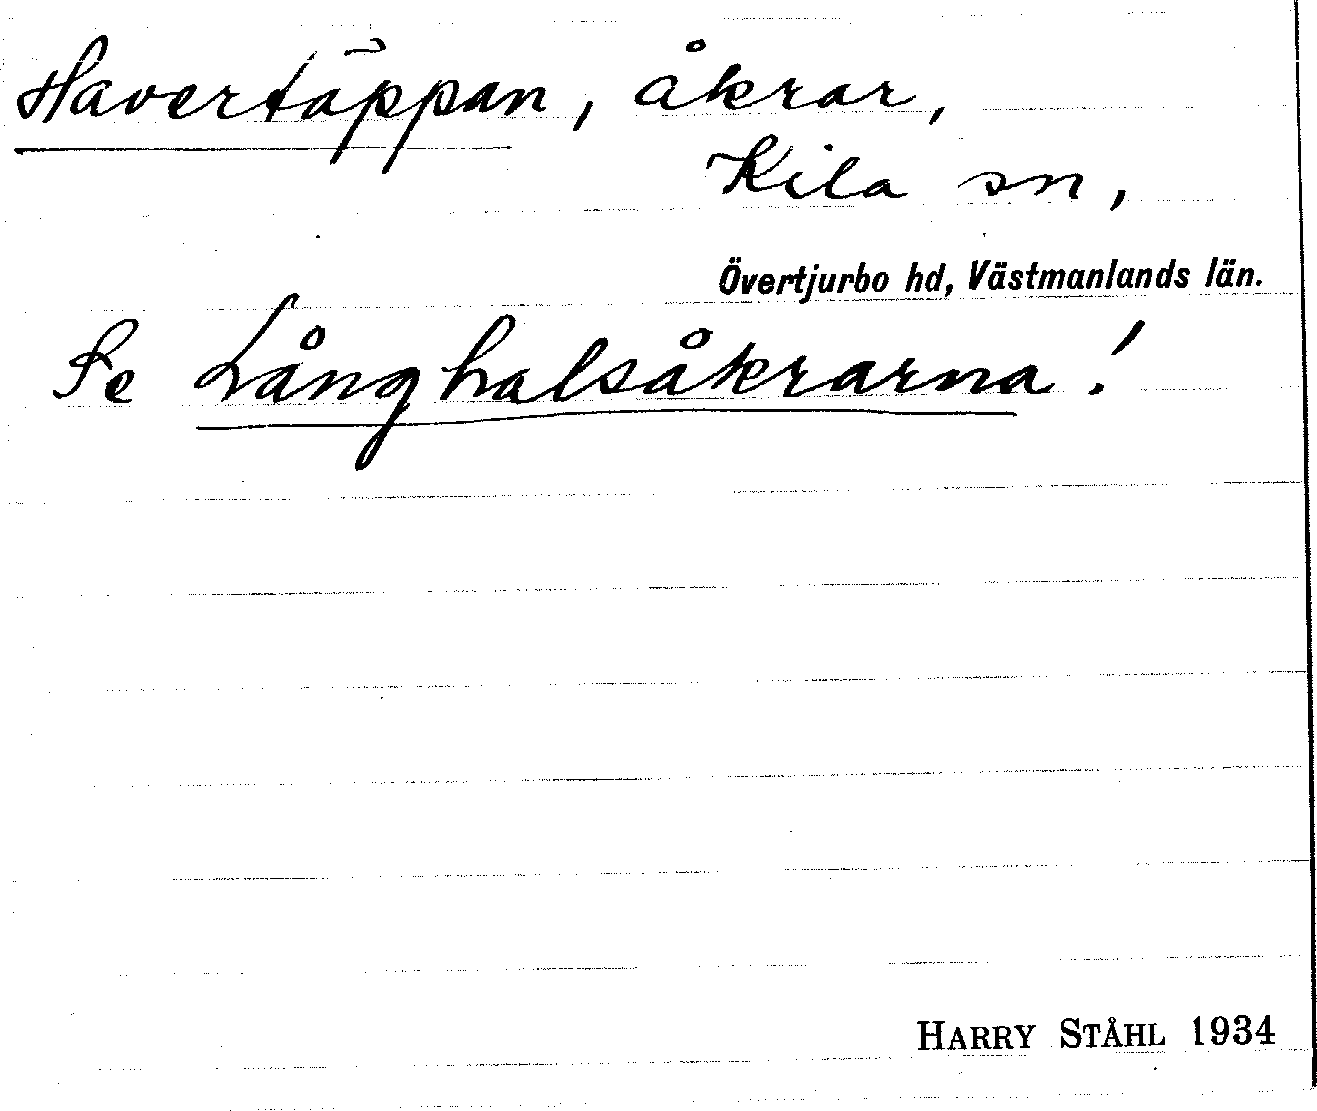 Havertäppan, åkrar,
Kila sn,
Övertjurbo hd, Västmanlands län.
Se Långhalsåkrarna!
HARRY STÅHL 1934